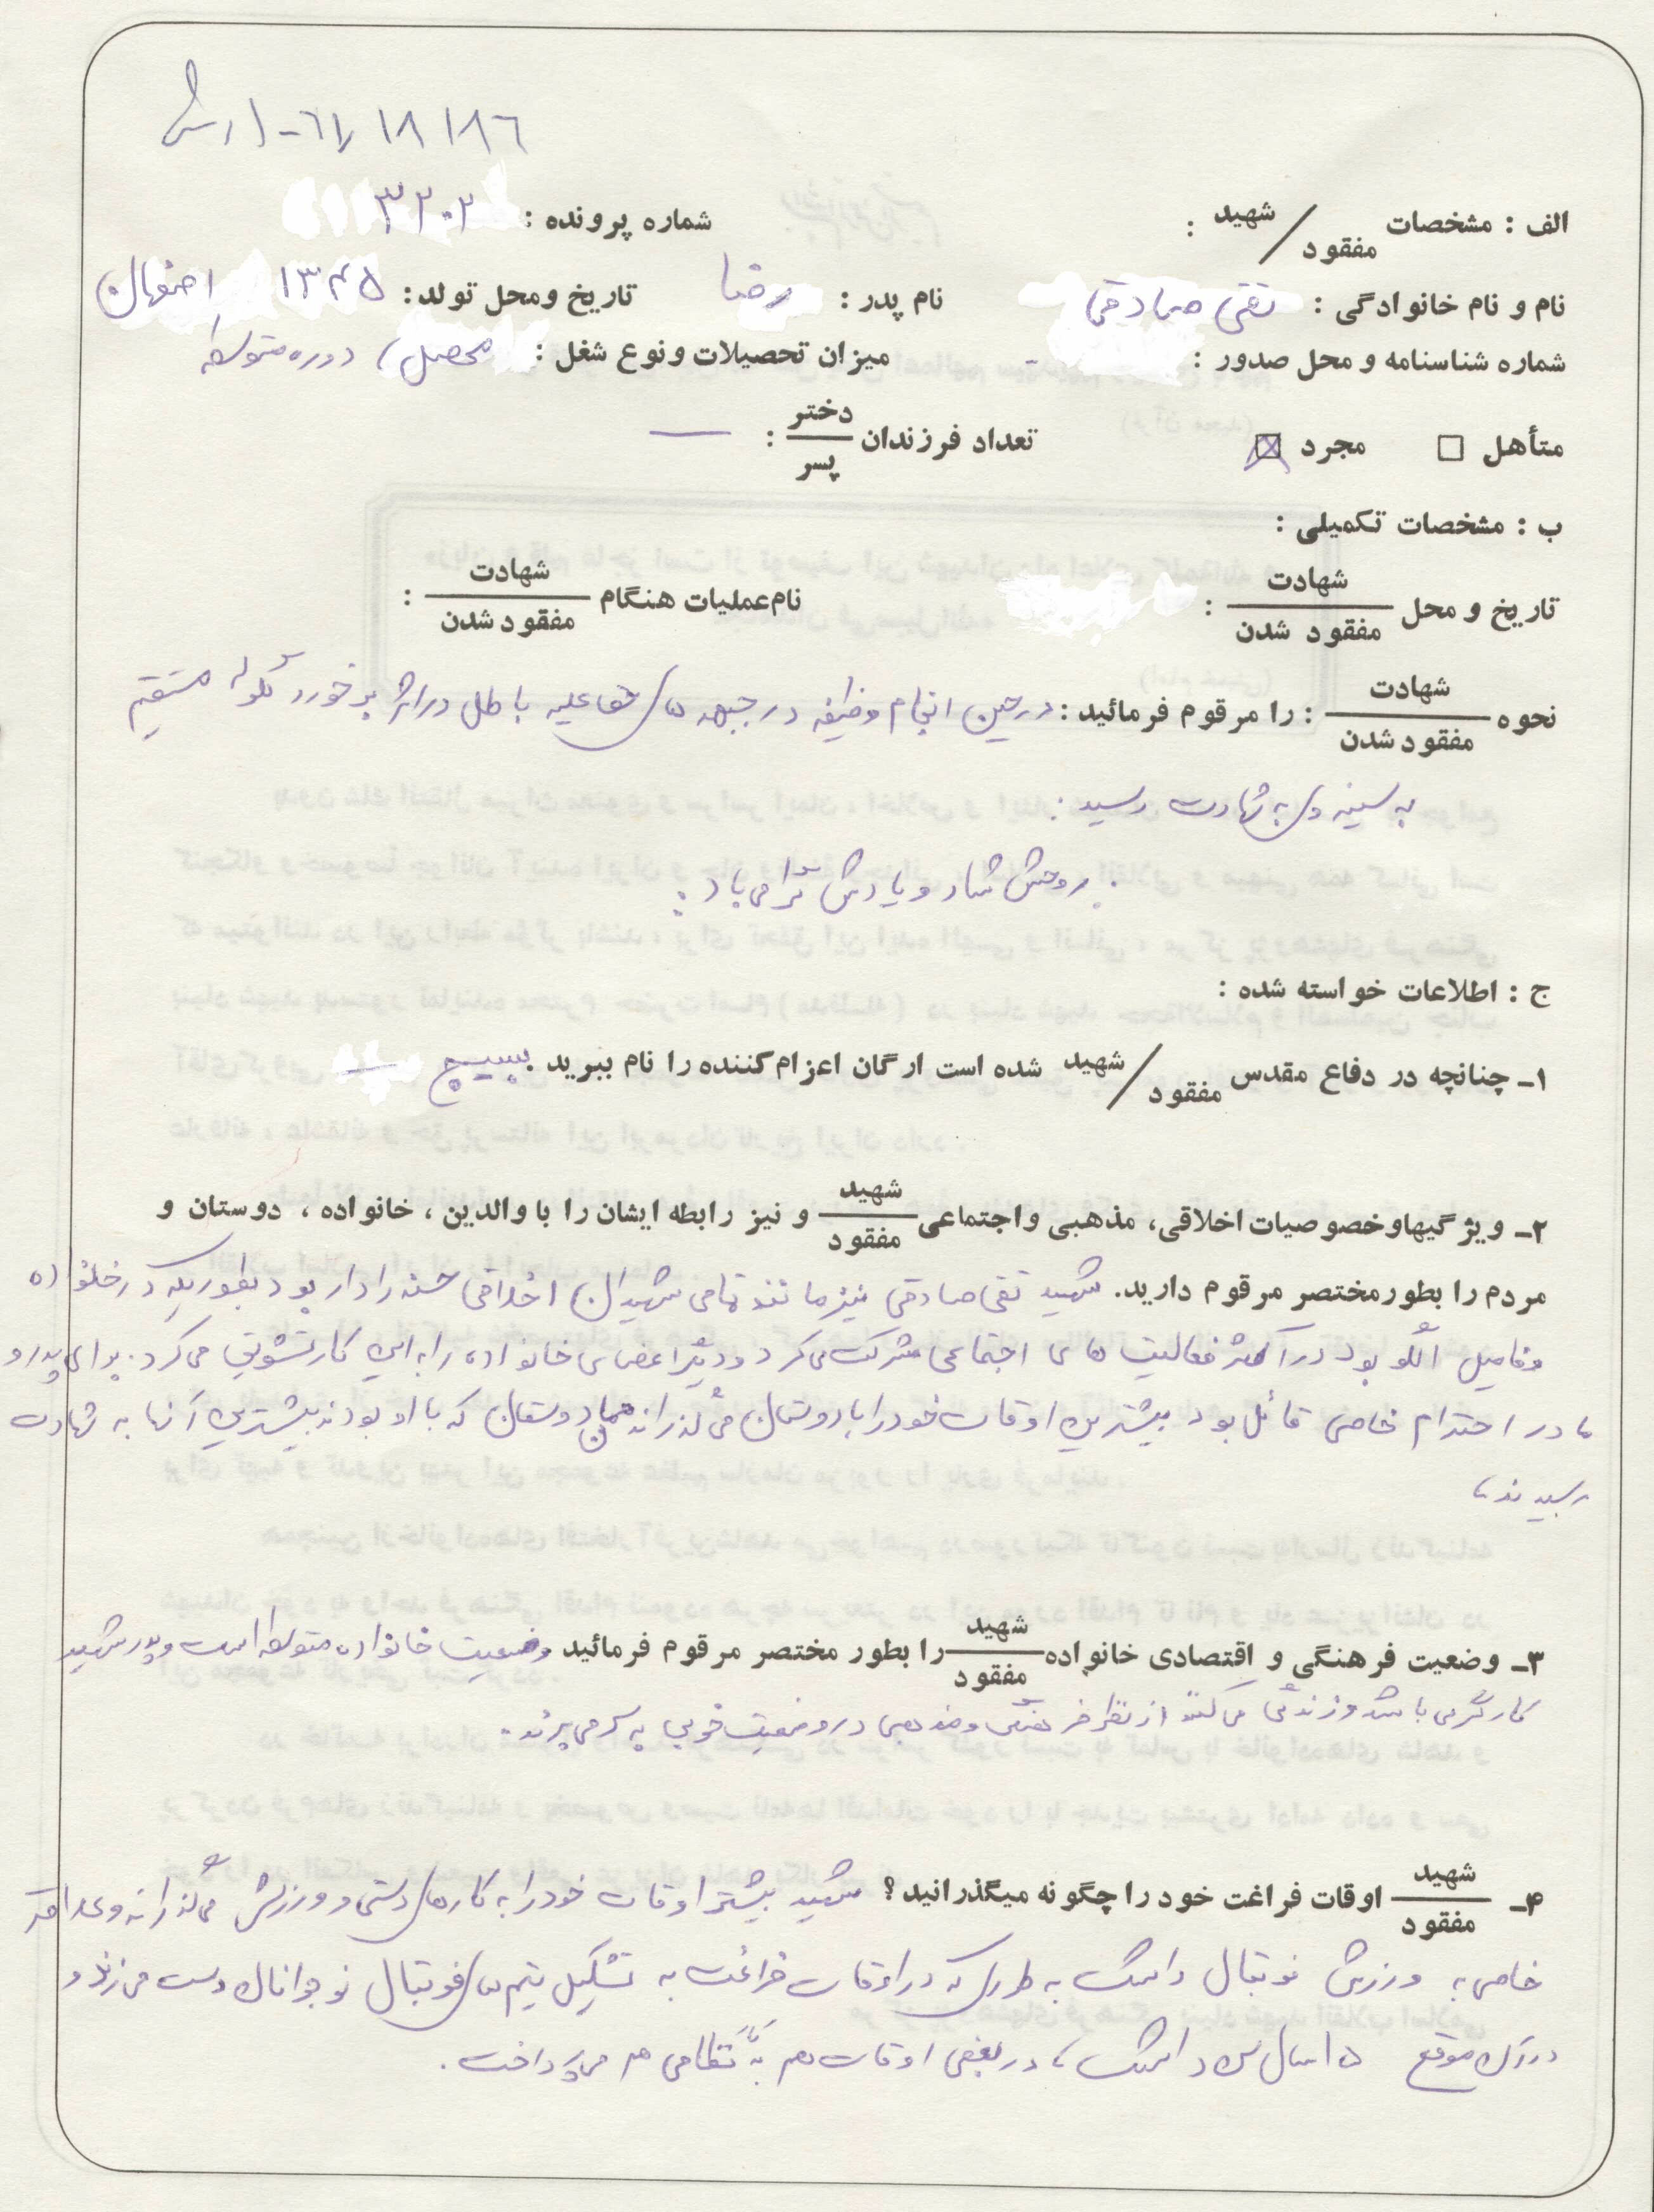 الف : مشخصات شهید / مفقود : شماره پرونده : ۳۲۰۲
نام و نام خانوادگی : تقی صادقی نام پدر : رضا تاریخ ومحل تولد : ۱۳۴۵ اصفهان
شماره شناسنامه و محل صدور : - میزان تحصیلات ونوع شغل : محصل دوره متوسطه
متأهل ☐ مجرد ☒ تعداد فرزندان دختر / پسر : —
ب : مشخصات تکمیلی :
تاریخ و محل شهادت / مفقود شدن : نام عملیات هنگام شهادت / مفقود شدن :
نحوه شهادت / مفقود شدن : را مرقوم فرمائید : در حین انجام وظیفه در جبهه های حق علیه باطل در اثر برخورد گلوله مستقیم
به سینه وی به شهادت رسید .
روحش شاد و یادش گرامی باد .
ج : اطلاعات خواسته شده :
۱ـ چنانچه در دفاع مقدس شهید / مفقود شده است ارگان اعزام کننده را نام ببرید . بسیج
۲ـ ویژگیها و خصوصیات اخلاقی، مذهبی واجتماعی شهید / مفقود و نیز رابطه ایشان را با والدین ، خانواده ، دوستان و
مردم را بطور مختصر مرقوم دارید. شهید تقی صادقی نیز مانند تمامی شهیدان اخلاقی حسنه را دار بود بطوریکه در خانواده
وفامیل الگو بود در اکثر فعالیت های اجتماعی شرکت می کرد و دیگر اعضای خانواده را به این کار تشویق می کرد . برای پدر و
مادر احترام خاصی قائل بود بیشترین اوقات خود را با دوستان می گذراند همان دوستان که با او بودند بیشترین آنها به شهادت
رسیدند ،
۳ـ وضعیت فرهنگی و اقتصادی خانواده شهید / مفقود را بطور مختصر مرقوم فرمائید وضعیت خانواده متوسط است و پدر شهید
کارگر می باشد و زندگی می کنند از نظر فرهنگی و مذهبی در وضعیت خوبی به سر می برند .
۴ـ شهید / مفقود اوقات فراغت خود را چگونه میگذرانید ؟ شهید بیشتر اوقات خود را به کارهای دستی و ورزش می گذراند و علاقه
خاصی به ورزش فوتبال داشت به طوری که در اوقات فراغت به تشکیل تیم های فوتبال نوجوانان دست می زند و
در آن موقع ۱۵ سال سن داشت ، در بعضی اوقات هم به نظامی هم می پرداخت .